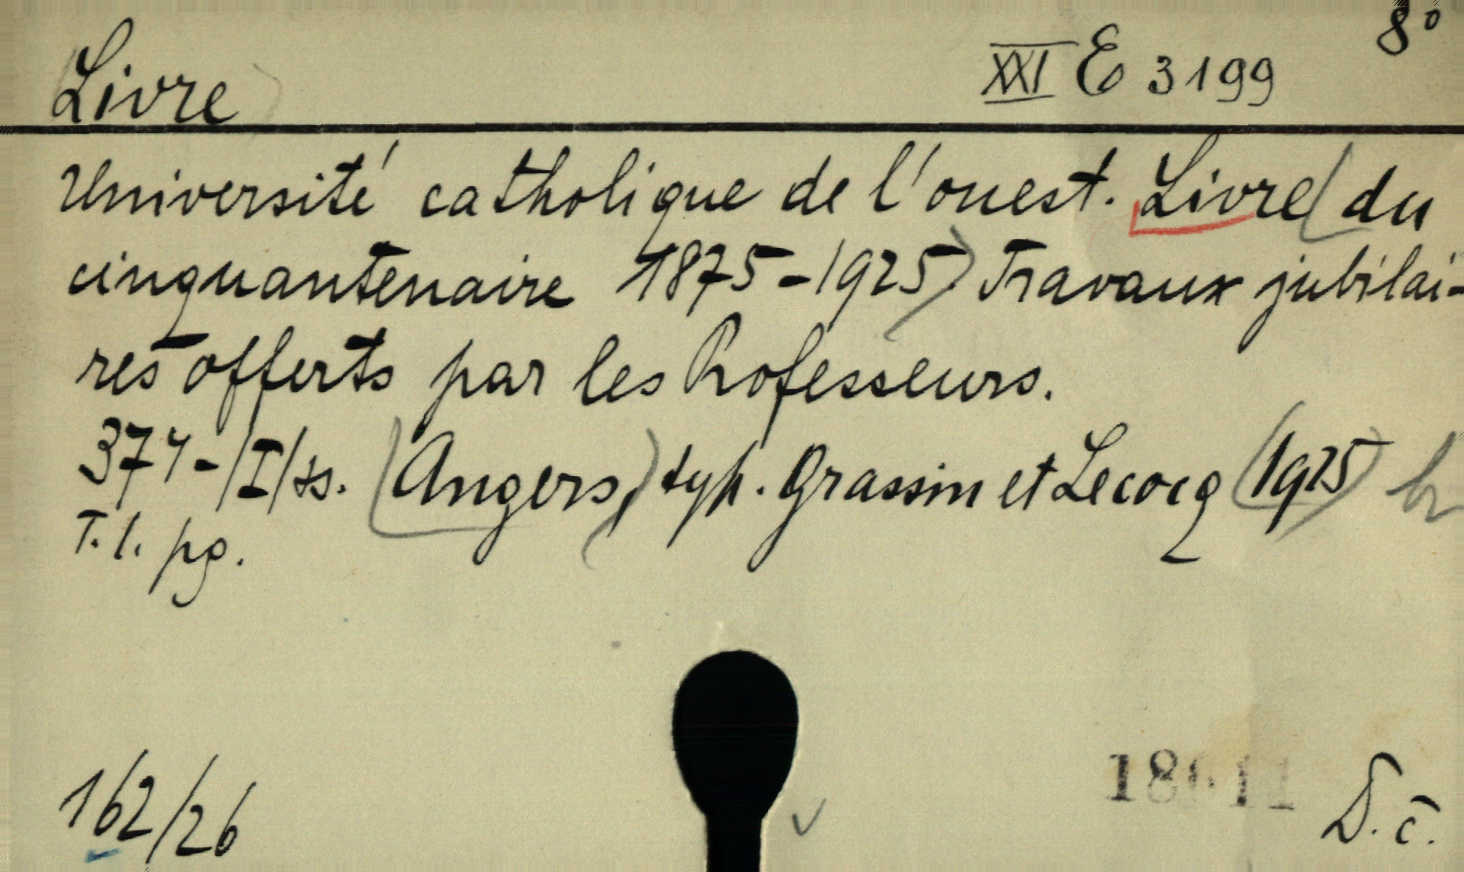 8°
Livre XXI E 3199
Université catholique de l'ouest. Livre du
cinquantenaire 1875-1925. Travaux jubilai-
res offerts par les Professeurs.
374-/I/ss. Angers, typ. Grassin et Lecocq 1925 br
T.l. pg.
162/26
D. č.